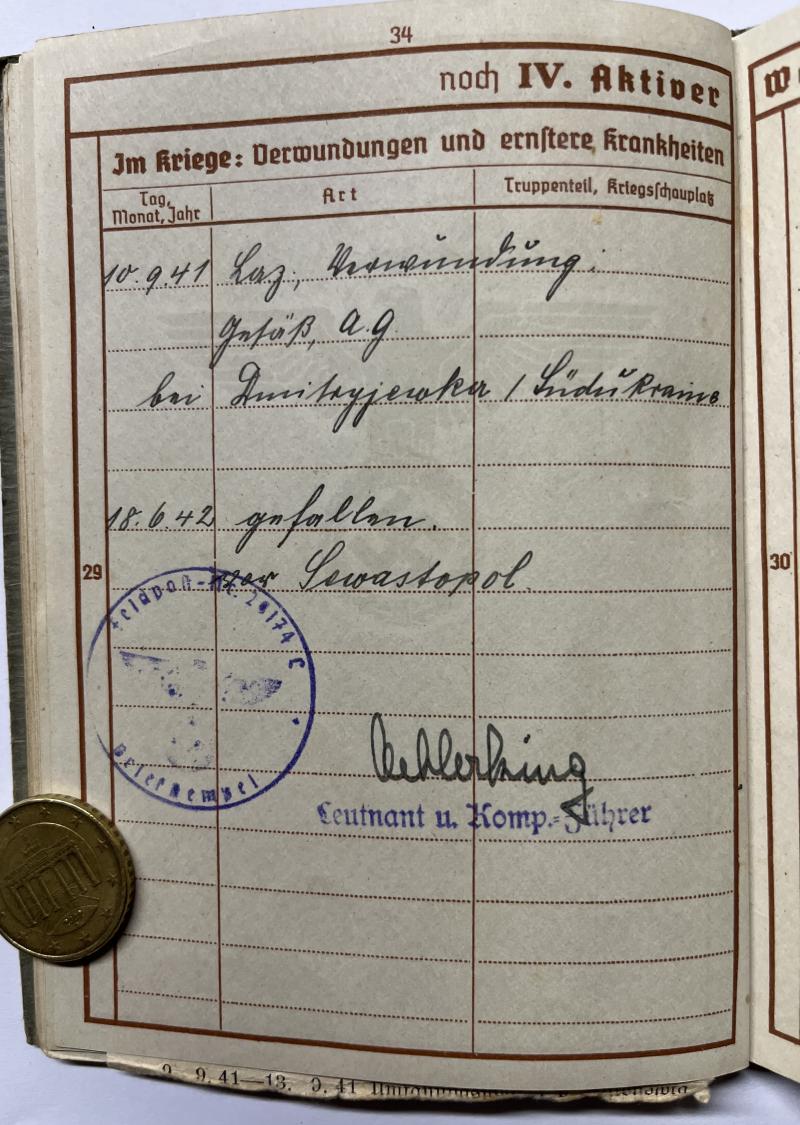 34
noch IV. Aktiver
W
Im Kriege: Verwundungen und ernstere Krankheiten
Tag, Monat, Jahr
Art
Truppenteil, Kriegsschauplatz
10.9.41 Laz., Verwundung.
Gesäß, A.G.
bei Dmitryjewka / Südukraine
18.6.42 gefallen.
29
vor Sewastopol.
30
Feldpost-Nr. 26174 C
Briefstempel
Oehlerking
Leutnant u. Komp.-Führer
9. 9. 41—13. 9. 41